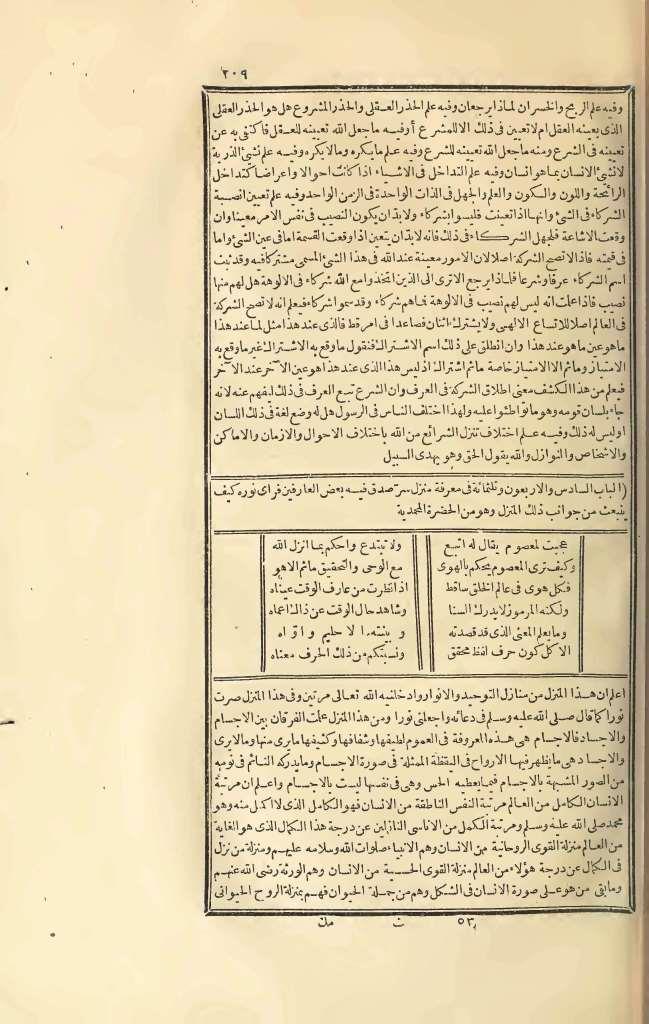 ٢٠٩
وفيه علم الربح والخسران لماذا يرجعان وفيه علم الحذر العقلى والحذر المشروع هل هو الحذر العقلى
الذى يعينه العقل ام لا تعيين فى ذلك الا للمشرع أو فيه ما جعل الله تعيينه للعقل فاكتفى به عن
تعيينه فى الشرع ومنه ما جعل الله تعيينه للشرع وفيه علم ما يكره وما لا يكره وفيه علم نشئ الذرية
لا نشئ الانسان بما هو انسان وفيه علم التداخل فى الاشياء اذا كانت احوالا واعراضا كتداخل
الرائحة واللون والسكون والعلم والجهل فى الذات الواحدة فى الزمن الواحد وفيه علم تعيين انصبة
الشركاء فى الشئ وانها اذا تعينت فليسوا بشركاء ولا بد ان يكون النصيب فى نفس الامر معينا وان
وقعت الاشاعة فلجهل الشركاء فى ذلك فانه لا بد ان يتعين اذا وقعت القسمة اما فى عين الشئ واما
فى قيمته فاذا لا تصح الشركة اصلا لان الامور معينة عند الله فى هذا الشئ المسمى مشتركا فيه وقد ثبت
اسم الشركاء عرفا وشرعا فلماذا يرجع الا ترى الى الذين اتخذوا مع الله شركاء فى الالوهة هل لهم منها
نصيب فاذا علمت انه ليس لهم نصيب فى الالوهة فما هم شركاء وقد سموا شركاء فيعلم انه لا تصح الشركة
فى العالم اصلا للاتساع الالهى ولا يشترك اثنان فصاعدا فى امر قط فالذى عند هذا مثل لما عند هذا
ما هو عين ما هو عند هذا وان انطلق على ذلك اسم الاشتراك فنقول ما وقع به الاشتراك غير ما وقع به
الامتياز وما ثم الا الامتياز خاصة ما ثم اشتراك اذ ليس هذا الذى عند هذا هو عين الآخر عند الآخر
فيعلم من هذا الكشف معنى اطلاق الشركة فى العرف وان الشرع تبع العرف فى ذلك ليفهم عنه لانه
جاء بلسان قومه وهو ما تواطئوا عليه ولهذا اختلف الناس فى الرسول هل له وضع لغة فى ذلك اللسان
او ليس له ذلك وفيه علم اختلاف تنزل الشرائع من الله باختلاف الاحوال والازمان والاماكن
والاشخاص والنوازل والله يقول الحق وهو يهدى السبيل
(الباب السادس والاربعون وثلثمائة فى معرفة منزل سر صدق فيه بعض العارفين فراى نوره كيف
ينبعث من جوانب ذلك المنزل وهو من الحضرة المحمدية
عجبت لمعصوم يقال له اتبع ولا تبتدع واحكم بما انزل الله
وكيف ترى المعصوم يحكم بالهوى مع الوحى والتحقيق ما ثم الا هو
فكل هوى فى عالم الخلق ساقط اذا نظرت من عارف الوقت عيناه
ولكنه المرموز لا يدرك السنا وشاهد حال الوقت عن ذاك اعماه
وما يعلم المعنى الذى قد قصدته وبينته الا حليم واواه
الا كل كون حرف لفظ محقق ونسبتكم من ذلك الحرف معناه
اعلم ان هذا المنزل من منازل التوحيد والانوار وادخلنيه الله تعالى مرتين وفى هذا المنزل صرت
نورا كما قال صلى الله عليه وسلم فى دعائه واجعلنى نورا ومن هذا المنزل علمت الفرقان بين الاجسام
والاجساد فالاجسام هى هذه المعروفة فى العموم لطيفها وشفافها وكثيفها ما يرى منها وما لا يرى
والاجساد هى ما يظهر فيها الارواح فى اليقظة الممثلة فى صورة الاجسام وما يدركه النائم فى نومه
من الصور المشبهة بالاجسام فيما يعطيه الحس وهى فى نفسها ليست بالاجسام واعلم ان مرتبة
الانسان الكامل من العالم مرتبة النفس الناطقة من الانسان فهو الكامل الذى لا اكمل منه وهو
محمد صلى الله عليه وسلم ومرتبة الكمل من الاناسى النازلين عن درجة هذا الكمال الذى هو الغاية
من العالم منزلة القوى الروحانية من الانسان وهم الانبياء صلوات الله وسلامه عليهم ومنزلة من نزل
فى الكمال عن درجة هؤلاء من العالم منزلة القوى الحسية من الانسان وهم الورثة رضى الله عنهم
وما بقى من هو على صورة الانسان فى الشكل وهم من جملة الحيوان فهم بمنزلة الروح الحيوانى
٥٣ ث مك